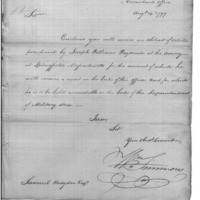 Accountants Office
Augt 14th 1797
Sir
Enclosed you will receive an abstract of articles
purchased by Joseph Williams Paymaster at the armory
at Springfield Massachusetts for the amount of which he
will receive a credit on the books of this office and for which
he is to be held accountable on the books of the Superintendant
of Military stores
I am
Sir
Your Obedt Servant
Wm Simmons
Samuel Hodgdon Esqr